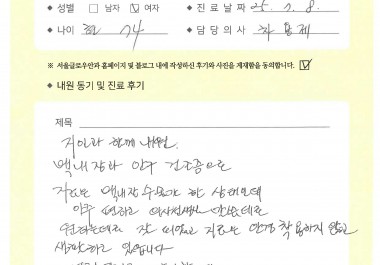 ◆ 성별 □ 남자 ☑ 여자 ◆ 진료 날짜 25. 7. 8.
◆ 나이 만 74 ◆ 담당의사
※ 서울글로우안과 홈페이지 및 블로그 내에 작성하신 후기와 사진을 게재함을 동의합니다. ☑
◆ 내원 동기 및 진료 후기
제목
지인과 함께 내원.
백내장과 안구 건조증으로
지금은 백내장 수술까지 한 상태인데
아주 편하고
잘 되었고 지금은 안경 착용하지 않고
생활하고 있습니다